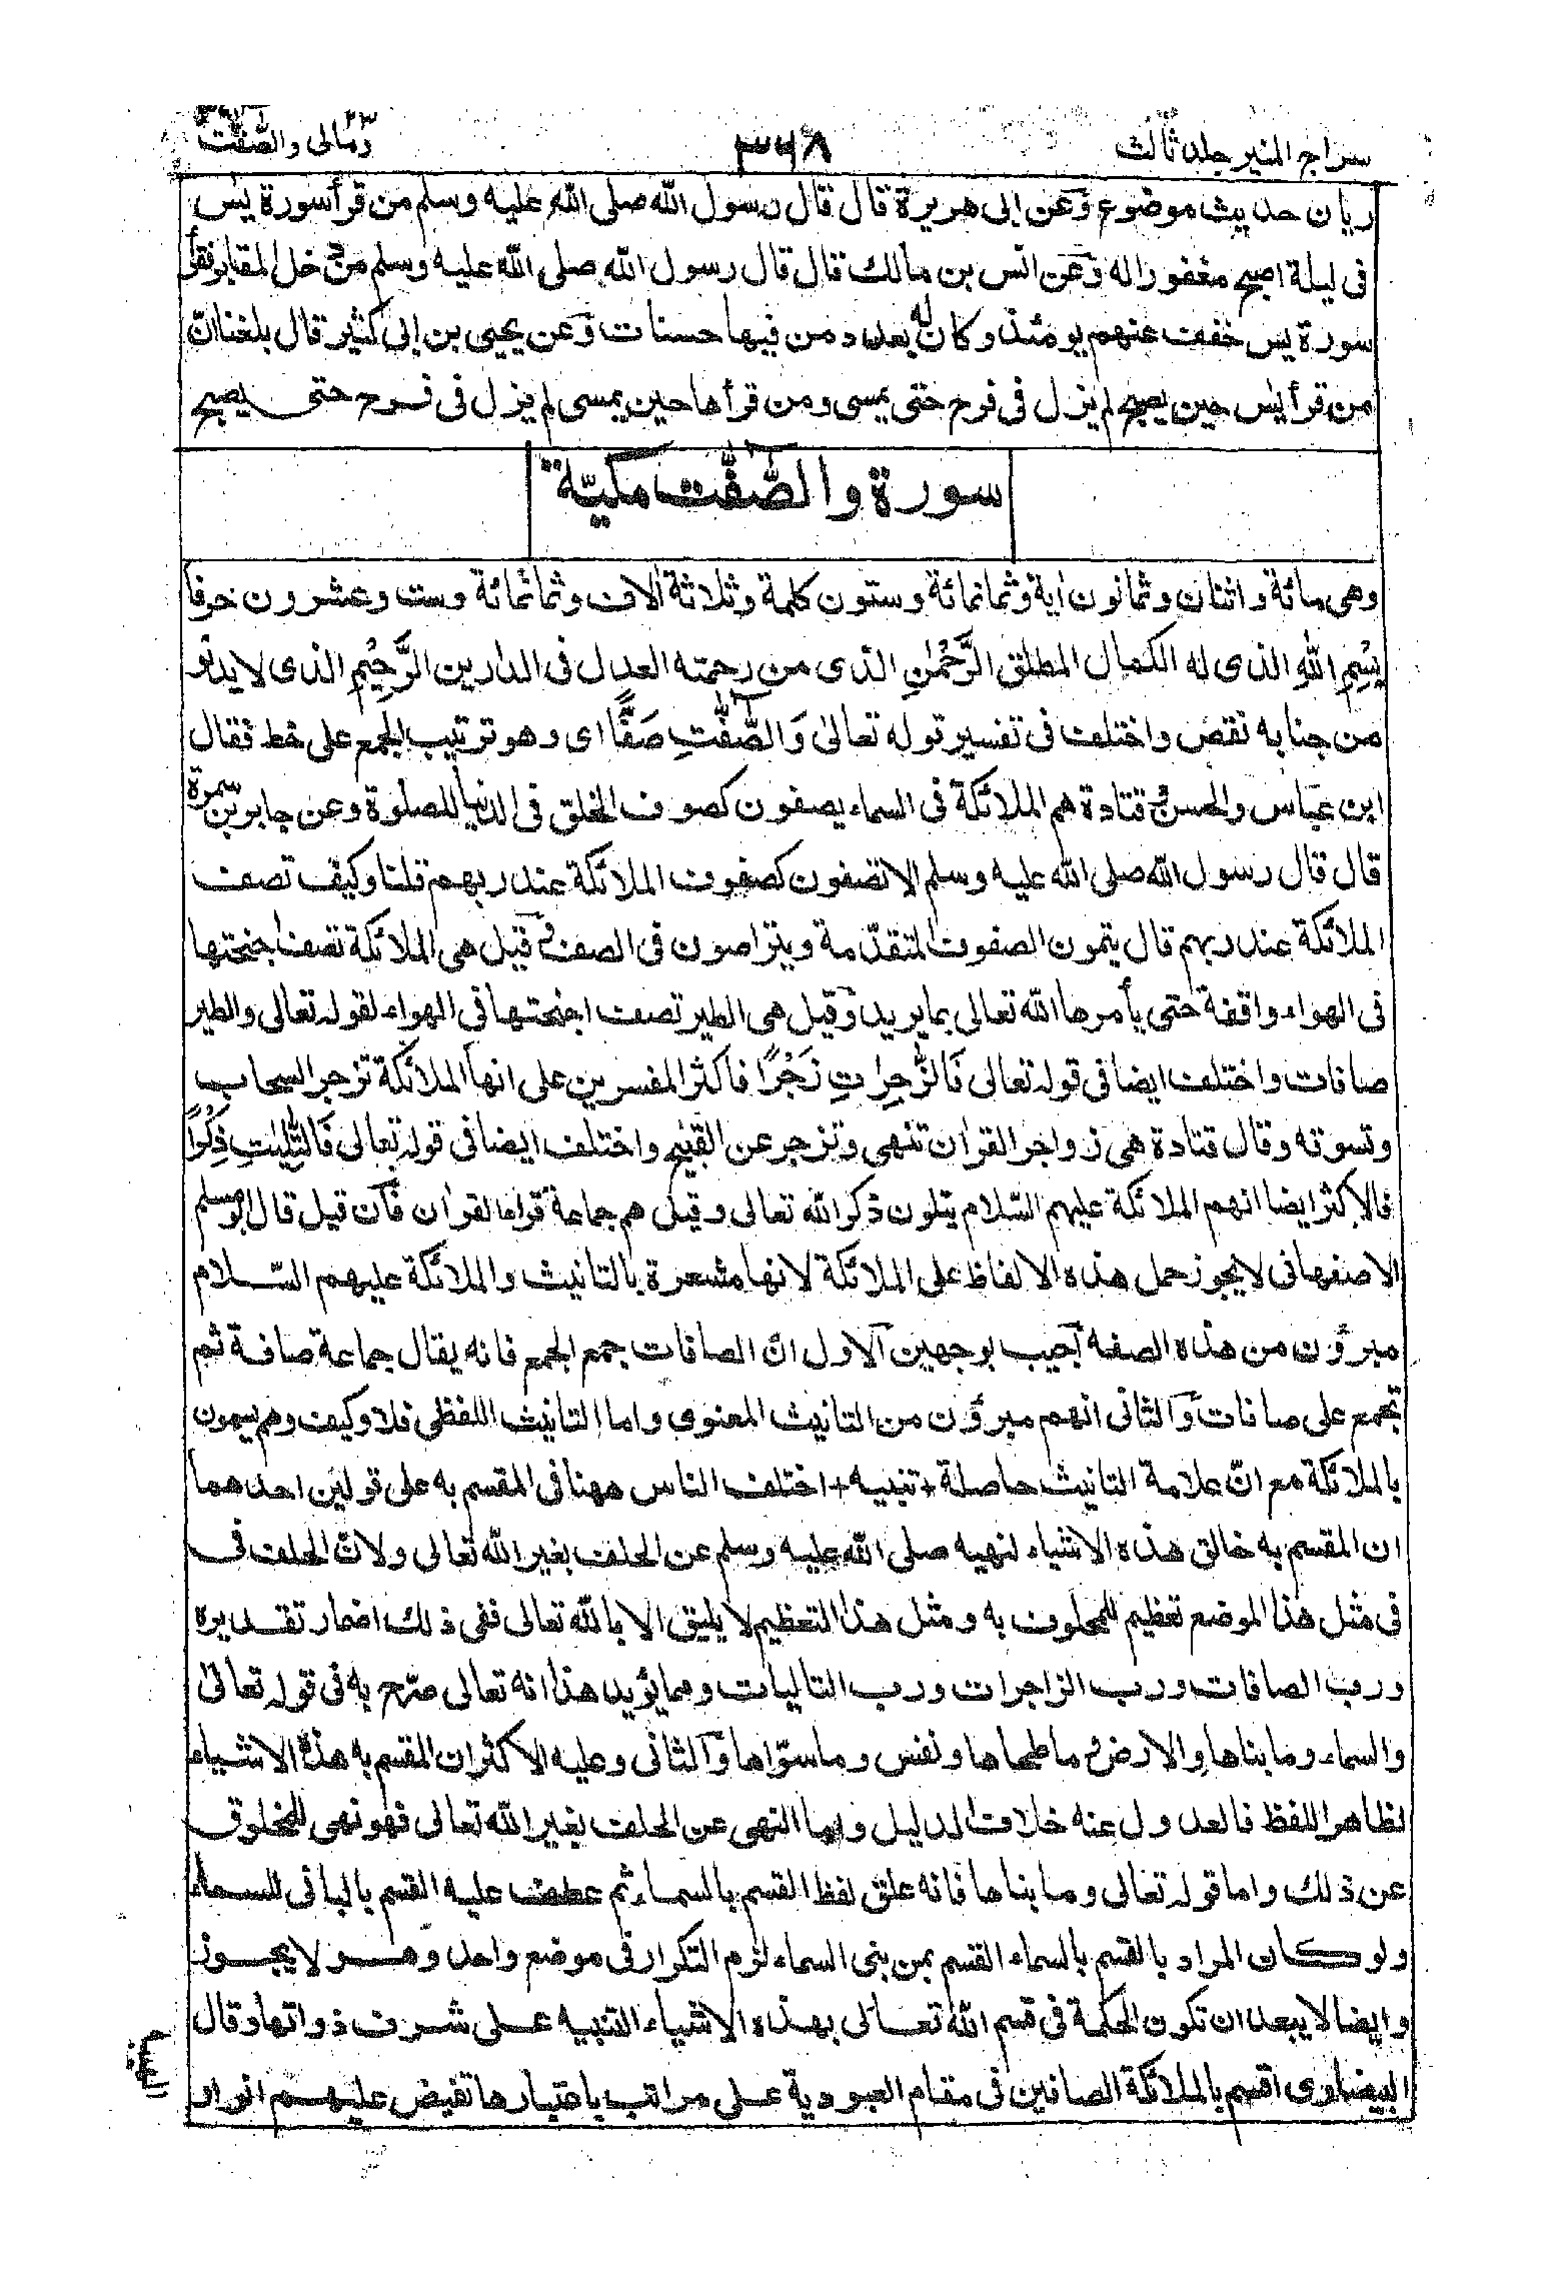 سراج المنير جلد ثالث ٣٦٨ ومالى والصّٰفّٰت
ريان حديث موضوع وعن ابى هريرة قال قال رسول الله صلى الله عليه وسلم من قرأ سورة يٰس
فى ليلة اصبح مغفورا له وعن انس بن مالك قال قال رسول الله صلى الله عليه وسلم من دخل المقابر فقرأ
سورة يس خففت عنهم يومئذ وكان له بعدد من فيها حسنات وعن يحيى بن ابى كثير قال بلغنا انّ
من قرأ يٰس حين يصبح لم يزل فى فرح حتى يمسى ومن قرأها حين يمسى لم يزل فى فرح حتى يصبح
سورة والصّٰفّٰت مكيّة
وهى مائة واثنتان وثمانون اية وثمانمائة وستون كلمة وثلاثة الاف وثمانمائة وست وعشرون حرفا
بِسْمِ اللهِ الذى له الكمال المطلق الرَّحْمٰنِ الذى من رحمته العدل فى الدارين الرَّحِيْمِ الذى لا يدنو
من جنابه نقص واختلف فى تفسير قوله تعالىٰ وَالصّٰٓفّٰتِ صَفًّا اى وهو ترتيب الجمع على خط فقال
ابن عباس والحسن وقتادة هم الملائكة فى السماء يصفون كصوف الخلق فى الدنيا للصلوة وعن جابر بن سمرة
قال قال رسول الله صلى الله عليه وسلم الا تصفون كصفوف الملائكة عند ربهم قلنا وكيف تصف
الملائكة عند ربهم قال يتمون الصفوف المتقدّمة ويتراصون فى الصف وقيل هى الملائكة تصف اجنحتها
فى الهواء واقفة حتى يأمرها الله تعالى بما يريد وقيل هى الطير تصف اجنحتها فى الهواء لقوله تعالى والطير
صافات واختلف ايضا فى قوله تعالى فَالزّٰجِرَاتِ زَجْرًا فاكثر المفسرين على انها الملائكة تزجر السحاب
وتسوقه وقال قتادة هى زواجر القران تنهى وتزجر عن القبيح واختلف ايضا فى قوله تعالى فَالتّٰلِيٰتِ ذِكْرًا
فالاكثر ايضا انهم الملائكة عليهم السّلام يتلون ذكر الله تعالى وقيل هم جماعة قراء القراٰن فان قيل قال ابو مسلم
الاصفهانى لا يجوز حمل هذه الالفاظ على الملائكة لانها مشعرة بالتانيث والملائكة عليهم السّلام
مبرؤن من هذه الصفه اجيب بوجهين الاول انّ الصافات جمع الجمع فانه يقال جماعة صافة ثم
تجمع على صافات والثانى انهم مبرؤن من التانيث المعنوى واما التانيث اللفظى فلا وكيف وهم يسمون
بالملائكة مع انّ علامة التانيث حاصلة + تنبيه + اختلف الناس ههنا فى المقسم به على قولين احدهما
ان المقسم به خالق هذه الاشياء لنهيه صلى الله عليه وسلم عن الحلف بغير الله تعالى ولانّ الحلف فى
فى مثل هذا الموضع تعظيم للمحلوف به ومثل هذا التعظيم لا يليق الا بالله تعالى ففى ذلك اضمار تقديره
ورب الصافات ورب الزاجرات ورب التاليات ومما يؤيد هذا انه تعالى صرّح به فى قوله تعالىٰ
والسماء وما بناها والارض وما طحاها ونفس وما سوّاها والثانى وعليه الاكثر ان المقسم به هذه الاشياء
لظاهر اللفظ فالعدول عنه خلاف الدليل واما النهى عن الحلف بغير الله تعالى فهو نهى للمخلوق
عن ذلك واما قوله تعالى وما بناها فانه علق لفظ القسم بالسماء ثم عطف عليه القسم بالبانى للسماء
ولو كان المراد بالقسم بالسماء القسم بمن بنى السماء لزم التكرار فى موضع واحد وهو لا يجوز
وايضا لا يبعد ان تكون الحكمة فى قسم الله تعالى بهذه الاشياء التنبيه على شرف ذواتها وقال
البيضاوى اقسم بالملائكة الصافين فى مقام العبودية على مراتب باعتبارها تفيض عليهم انوار